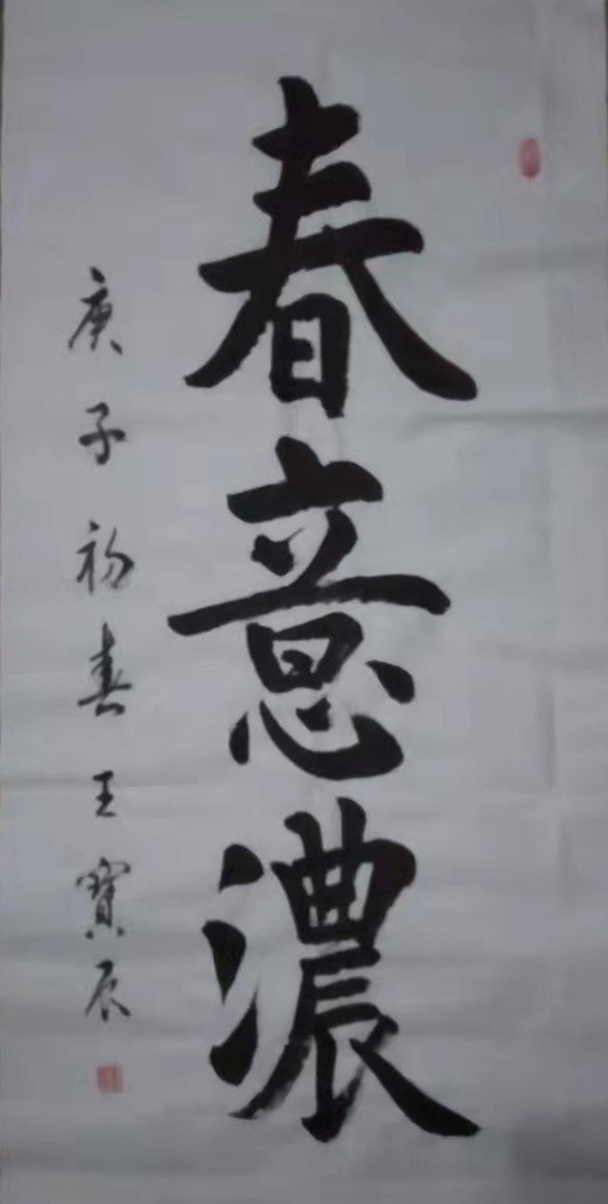 春意濃
庚子初春王寳辰